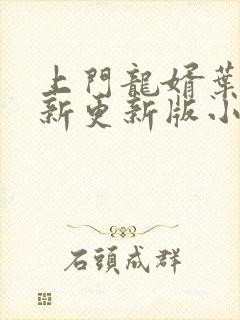 上門龍婿葉
新更新版小
石頭成群